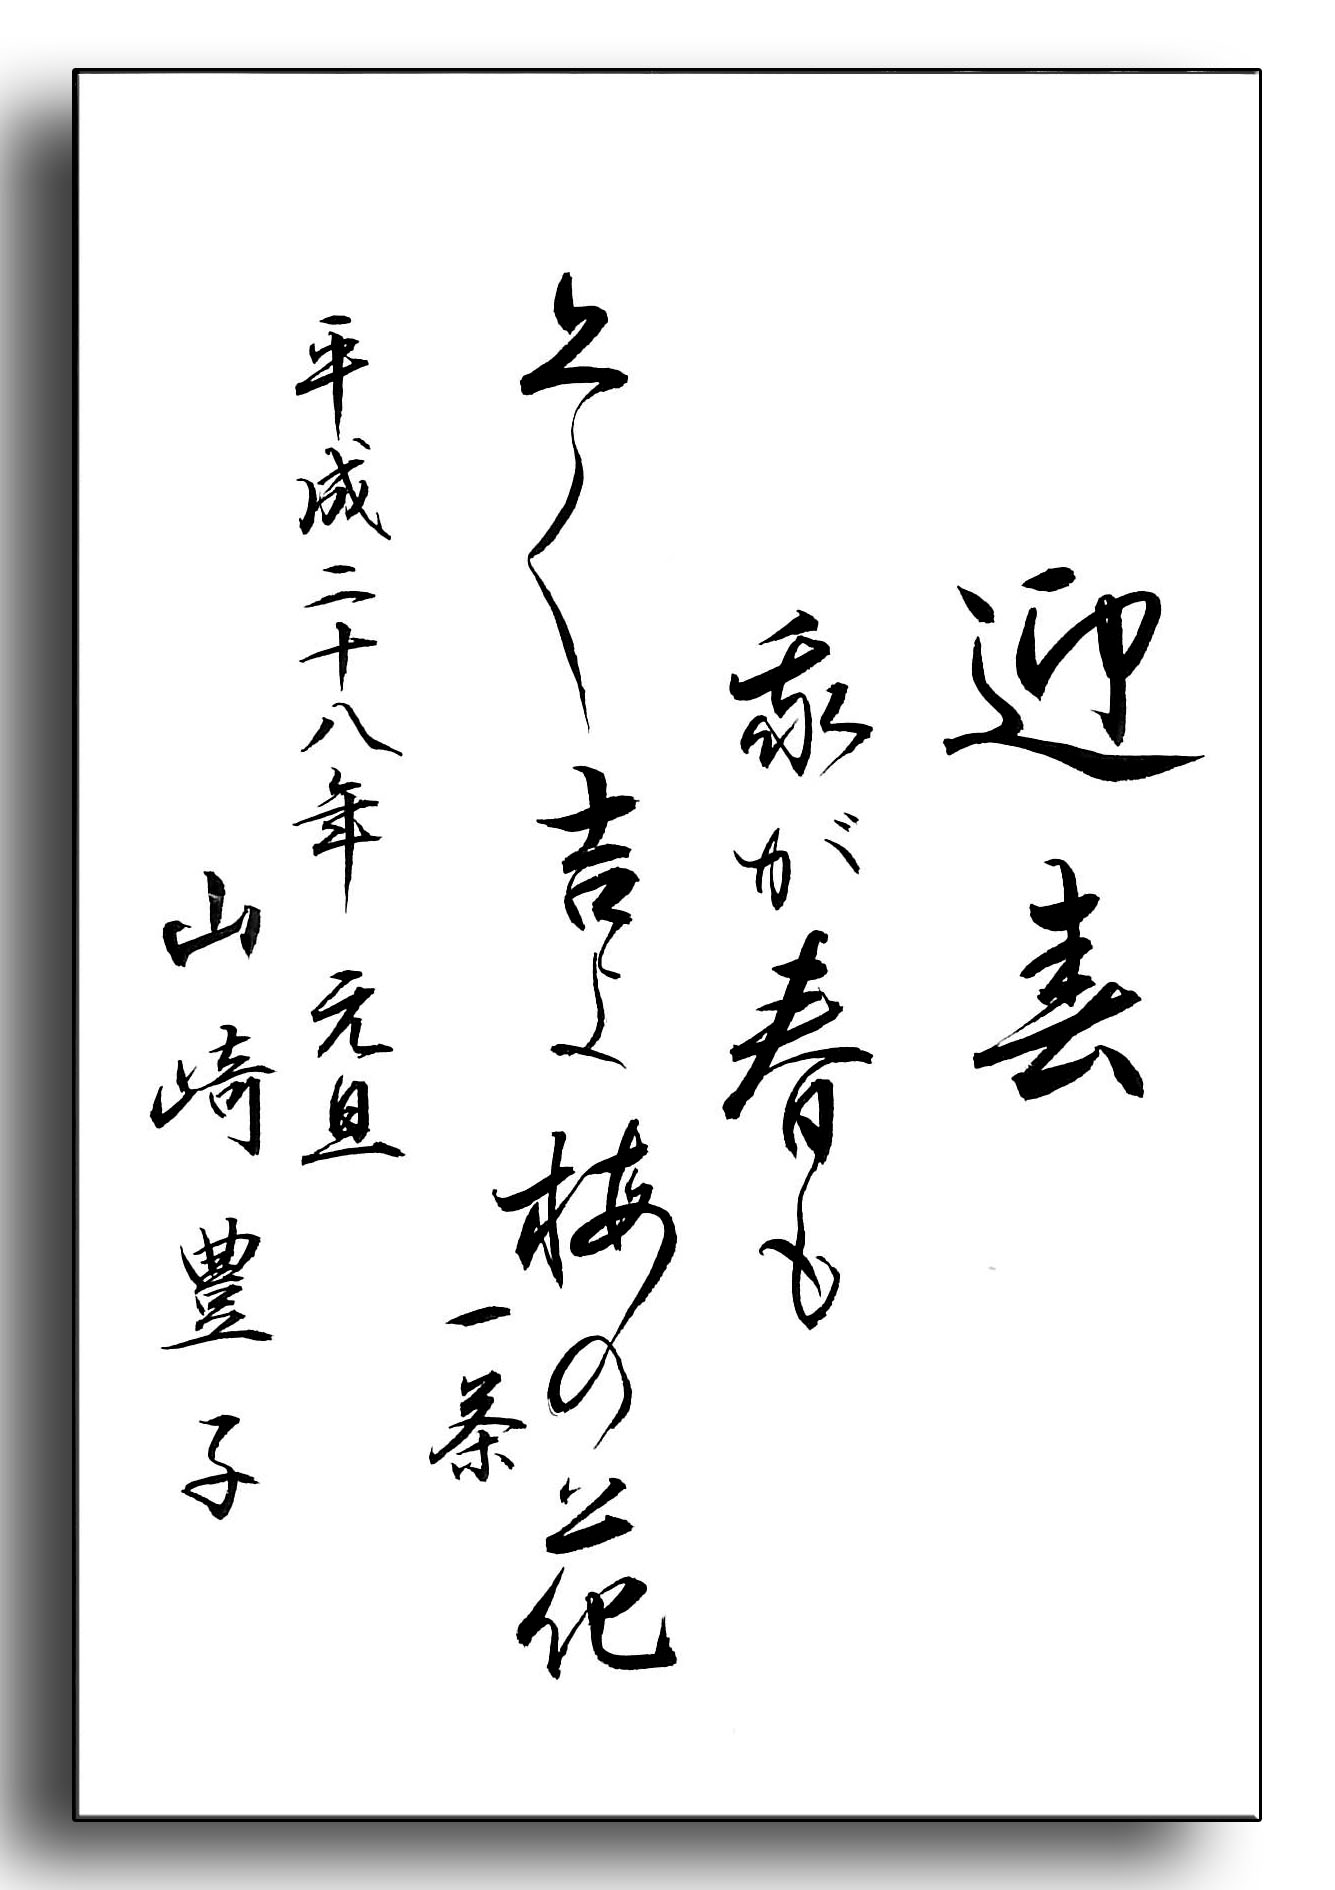 迎春
我が春も
上〳〵吉よ梅の花
一茶
平成二十八年 元旦
山崎豊子